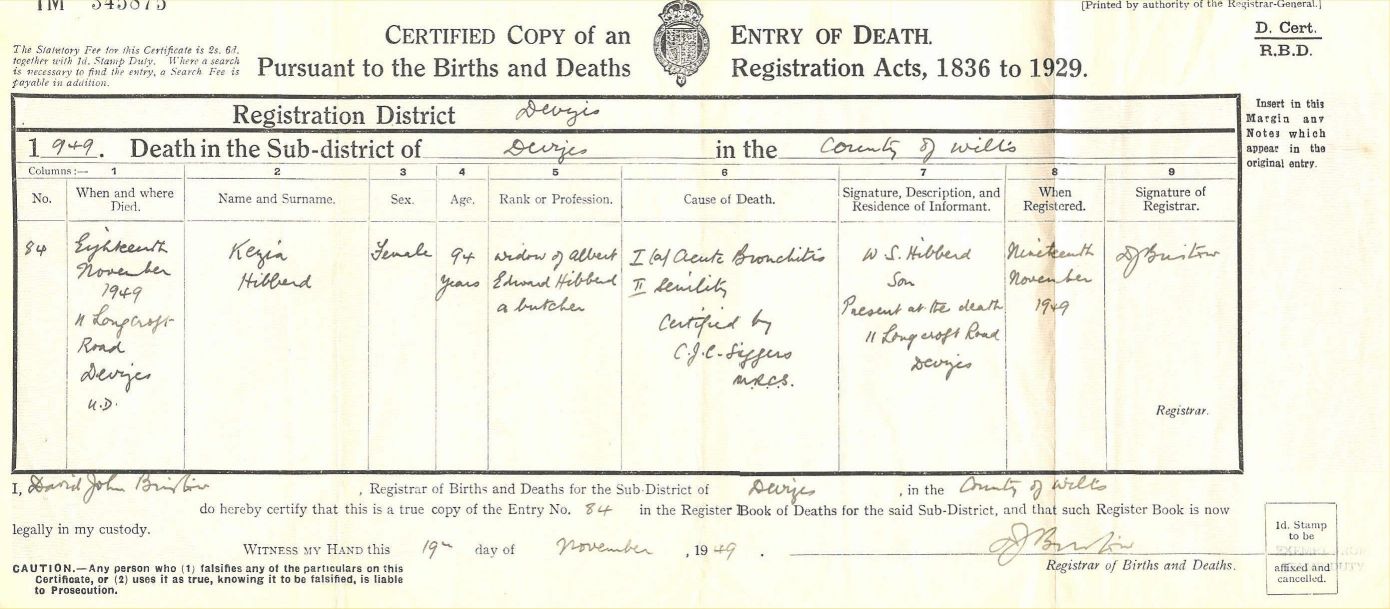 IM 345875
[Printed by authority of the Registrar-General.]
The Statutory Fee for this Certificate is 2s. 6d.
together with 1d. Stamp Duty. Where a search
is necessary to find the entry, a Search Fee is
payable in addition.
CERTIFIED COPY of an ENTRY OF DEATH.
Pursuant to the Births and Deaths Registration Acts, 1836 to 1929.
D. Cert.
R.B.D.
Insert in this
Margin any
Notes which
appear in the
original entry.
Registration District Devizes
1949. Death in the Sub-district of Devizes in the County of Wilts
Columns:— 1 2 3 4 5 6 7 8 9
No.
When and where
Died.
Name and Surname.
Sex.
Age.
Rank or Profession.
Cause of Death.
Signature, Description, and
Residence of Informant.
When
Registered.
Signature of
Registrar.
84
Eighteenth
November
1949
11 Longcroft
Road
Devizes
U.D.
Kezia
Hibberd
Female
94
years
widow of Albert
Edward Hibberd
a butcher
I (a) Acute Bronchitis
II Senility
Certified by
C.J.C. Siggers
M.R.C.S.
W S. Hibberd
Son
Present at the death
11 Longcroft Road
Devizes
Nineteenth
November
1949
DJ Bristow
Registrar.
I, David John Bristow, Registrar of Births and Deaths for the Sub-District of Devizes, in the County of Wilts
do hereby certify that this is a true copy of the Entry No. 84 in the Register Book of Deaths for the said Sub-District, and that such Register Book is now
legally in my custody.
WITNESS MY HAND this 19th day of November, 1949.
DJ Bristow
Registrar of Births and Deaths.
CAUTION.—Any person who (1) falsifies any of the particulars on this
Certificate, or (2) uses it as true, knowing it to be falsified, is liable
to Prosecution.
1d. Stamp
to be
affixed and
cancelled.